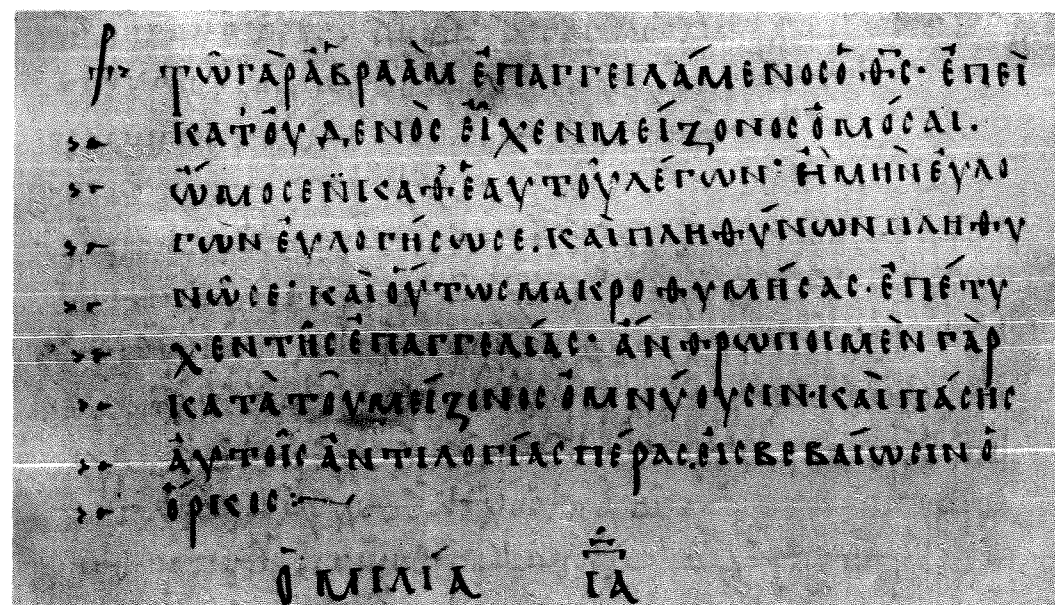 τῶ γὰρ ἀβραὰμ ἐπαγγειλάμενος ὁ θς· ἐπεὶ
κατ' οὐδενὸς εἶχεν μείζονος ὀμόσαι.
ὤμοσεν καθ' ἑαυτοῦ λέγων· ἠ μὴν εὐλο
γῶν εὐλογήσω σε. καὶ πληθύνων πληθυ
νῶ σε· καὶ οὕτως μακροθυμήσας· ἐπέτυ
χεν τῆς ἐπαγγελίας· ἄνθρωποι μὲν γὰρ
κατὰ τοῦ μείζονος ὀμνύουσιν· καὶ πάσης
αὐτοῖς ἀντιλογίας πέρας, εἰς βεβαίωσιν ὁ
ὅρκος:
ὁμιλία ια